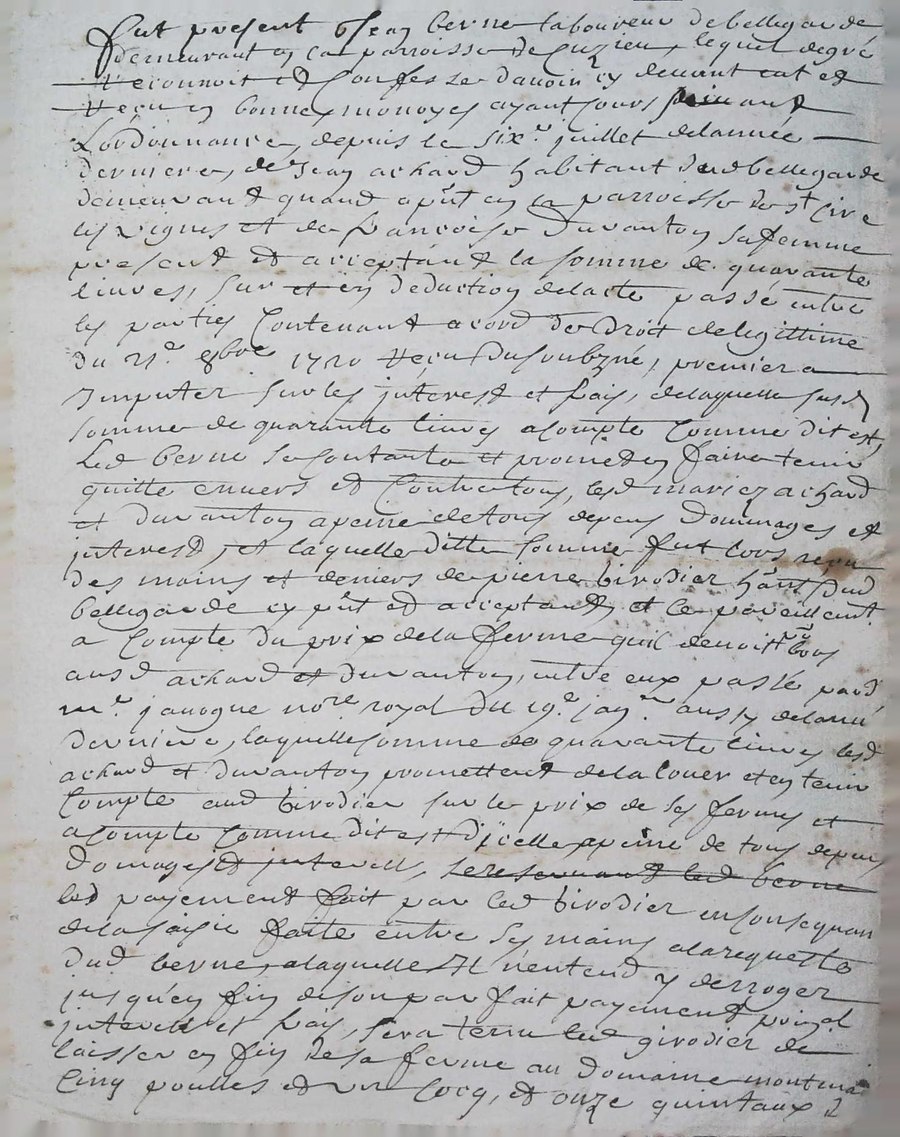 fut present Jean berne laboureur de bellegarde
demeurant en la parroisse de Cuzieu, lequel de gré
reconnoit et Confesse davoir cy devant eut et
reçu en bonnes monoyes ayant Cours suivant
Lordonnance, depuis le six.e juillet delannée
derniere, de Jean achard habitant dud bellegarde
demeurant quand a p̃nt en la parroisse de st Cire
les vignes et de françoise Duranton sa femme
present et acceptant la somme de quarante
livres, sur et en deduction delacte passé entre
les parties Contenant acord de Droit de legittime
du 21.e 8bre 1720 reçu Dusoubzné, premier a
Imputer sur les interest et frais, delaquelle susd
somme de quarante livres acompte Comme dit est,
Led berne se Contante et promet en faire tenir
quitte envers et Contre tous, lesd mariez achard
et duranton a peine de tous depens Dommages et
interest, et laquelle ditte somme fut lors reçu
des mains et deniers de pierre Girodier hãnt dud
bellegarde cy p̃nt et acceptant, et ce pareillemt
a Compte du prix de la ferme quil devoit pr lors
ausd achard et duranton, entre eux passé pard
m.e javogne no.re royal du 19.e jan.er aussy delanné
derniere, laquelle somme de quarante livres lesd
achard et duranton promettent de la louer et en tenir
Compte aud Girodier sur le prix de ses fermes et
acompte Comme dit est d'icelle, apeine de tous depens
Domages et interests, se reservant led berne
led payement fait par led Girodier en Consequan
de la saisie faite entre ses mains a la requette
dud berne, a laquelle Il n'entend y derroger
jusqu'en fin de son parfait payement prinzal
interest et frais, sera tenu led girodier de
laisser en fin de sa ferme au domaine
Cinq poulles et un Cocq, et onze quintaux